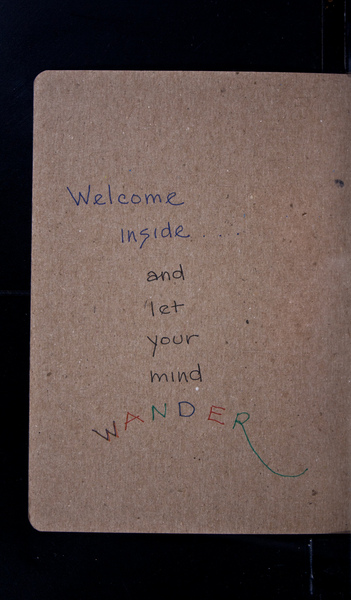 Welcome
inside....
and
let
your
mind
WANDER